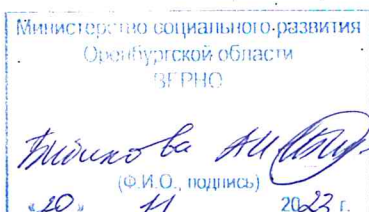 Министерство социального развития
Оренбургской области
ВЕРНО
(Ф.И.О., подпись)
«20» 11 2023 г.